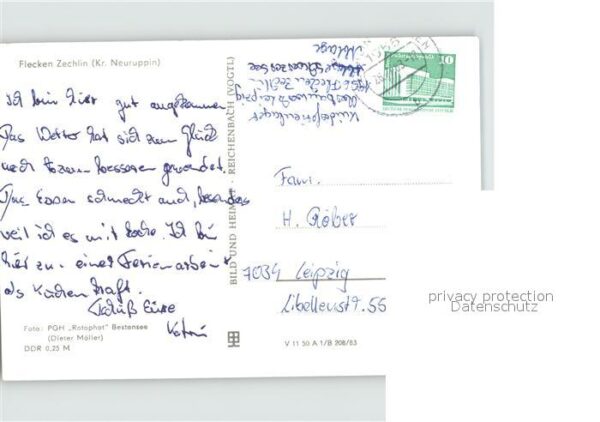 Flecken Zechlin (Kr. Neuruppin)
Ich bin hier gut angekommen
Das Wetter hat sich zum Glück
nach besseren gewendet.
Das Essen schmeckt auch, besonders
weil ich es mit koche. Ich bin
hier zu einer Ferienarbeit
als Küchenkraft.
Tschüß Eure
Katrin
Foto: PGH „Rotophot" Bestensee
(Dieter Möller)
DDR 0,25 M
BILD UND HEIMAT REICHENBACH (VOGTL)
Kinderferienlager
Leipzig
1956 Flecken Zechlin
10
Fam.
H. Gröber
7034 Leipzig
Libellenstr. 55
V 11 50 A 1/B 208/83
privacy protection
Datenschutz